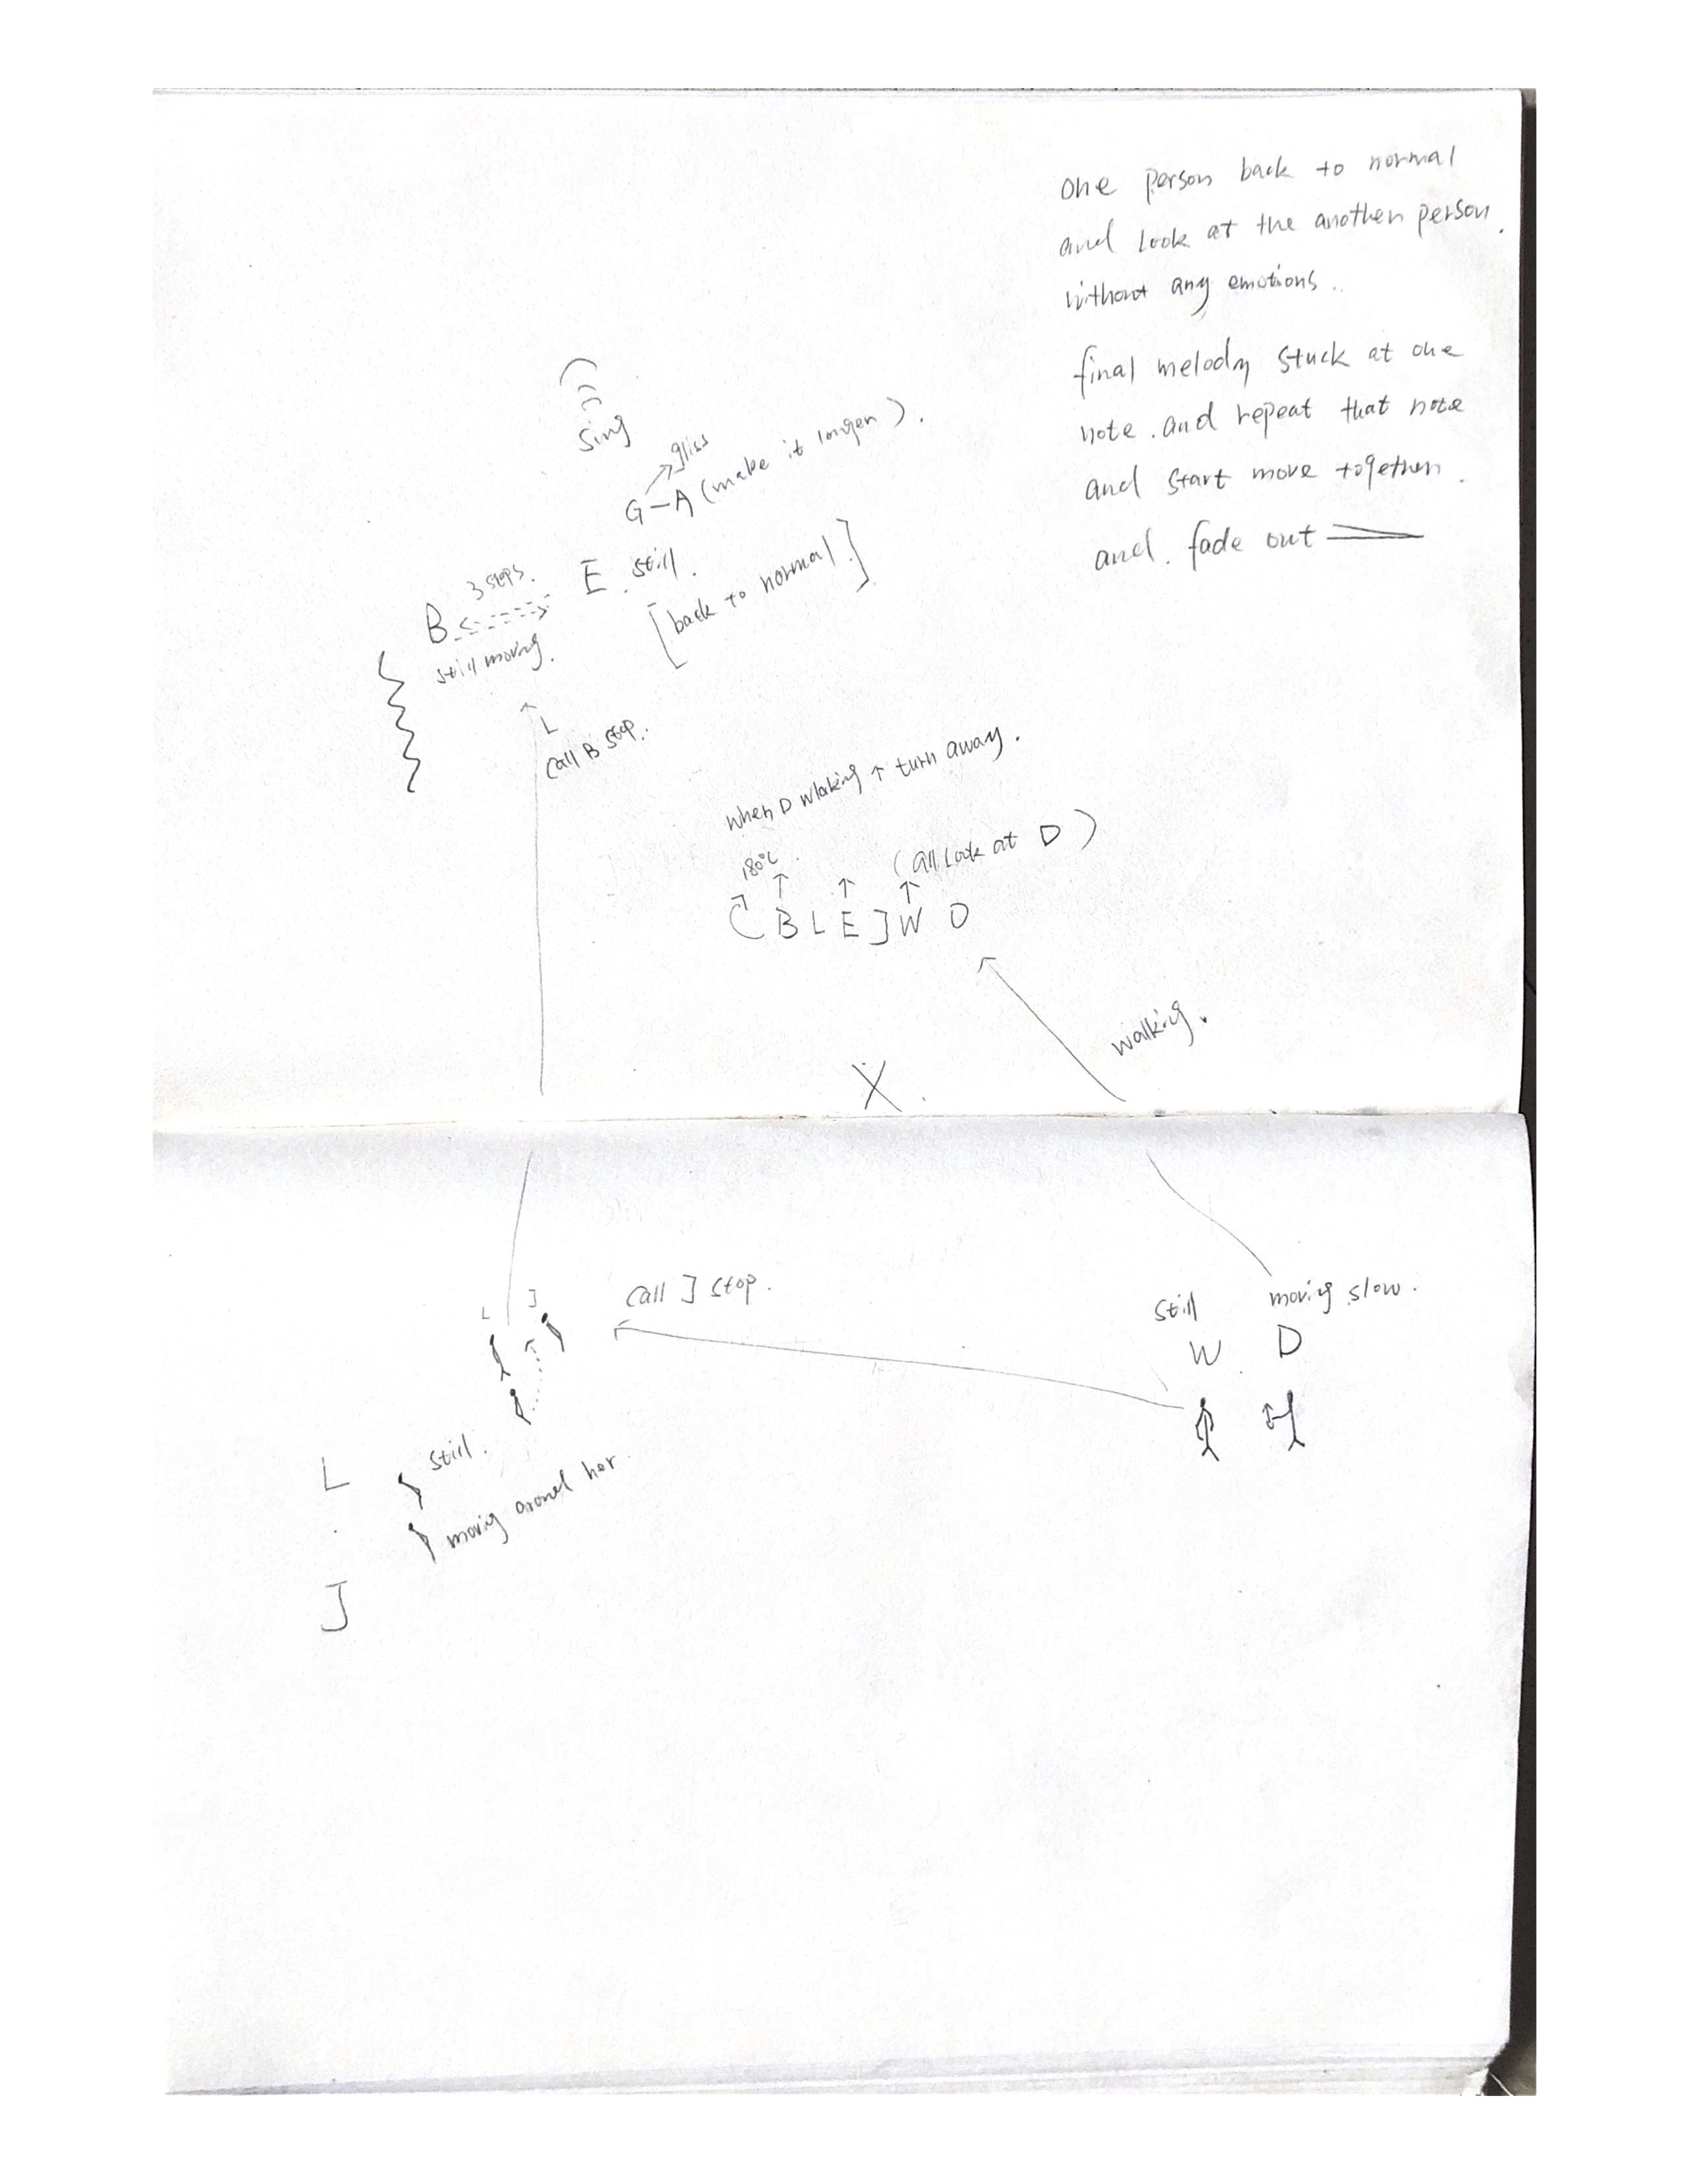 one person back to normal
and look at the another person.
without any emotions..
final melody stuck at one
note. and repeat that note
and start move together.
and. fade out
sing
gliss
G – A (make it longer).
3 steps.
B E. still.
still moving.
[back to normal]
L
Call B stop.
when D wlaking ↑ turn away.
180°C
(all look at D)
B L E J W D
walking.
X.
Call J stop.
L J
still moving slow.
W. D
L still.
moving around her.
J